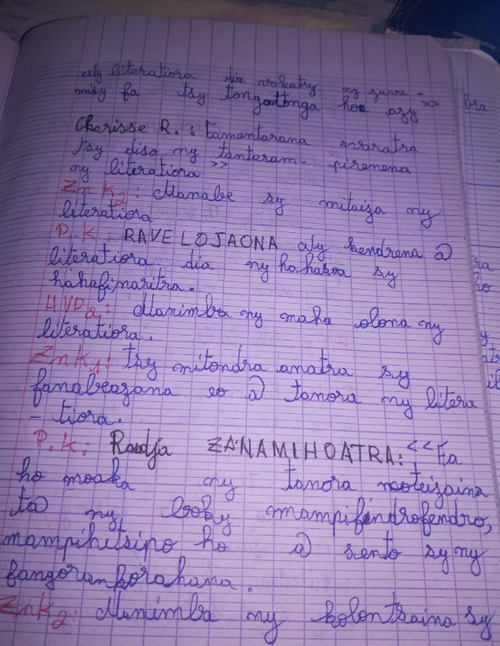 ny literatiora dia mohatry ny zava -
misy fa tsy tongatonga ho azy >>
Charisse R. : tamantarana
tsy diso ny tantaram- pirenena
ny literatiora >>
Zm K2 : Manabe sy mitaiza ny
literatiora
P. K : RAVELOJAONA aly hendrena @
literatiora dia ny hahaboa sy
hahafinaritra.
HVD2 : Manimba ny maha olona ny
literatiora.
ZmK1 : tsy mitondra anatra sy
fanabeazana eo @ tanora ny litera
- tiora.
P.K : Raudja ZANAMIHOATRA: <<Fa
ho moaka ny tanora naoteizaina
t@ ny boky mampifendrofendro,
mampihitsipo ho @ sento sy ny
fangorankorahana.
ZnK2 : Manimba ny kolontsaina sy